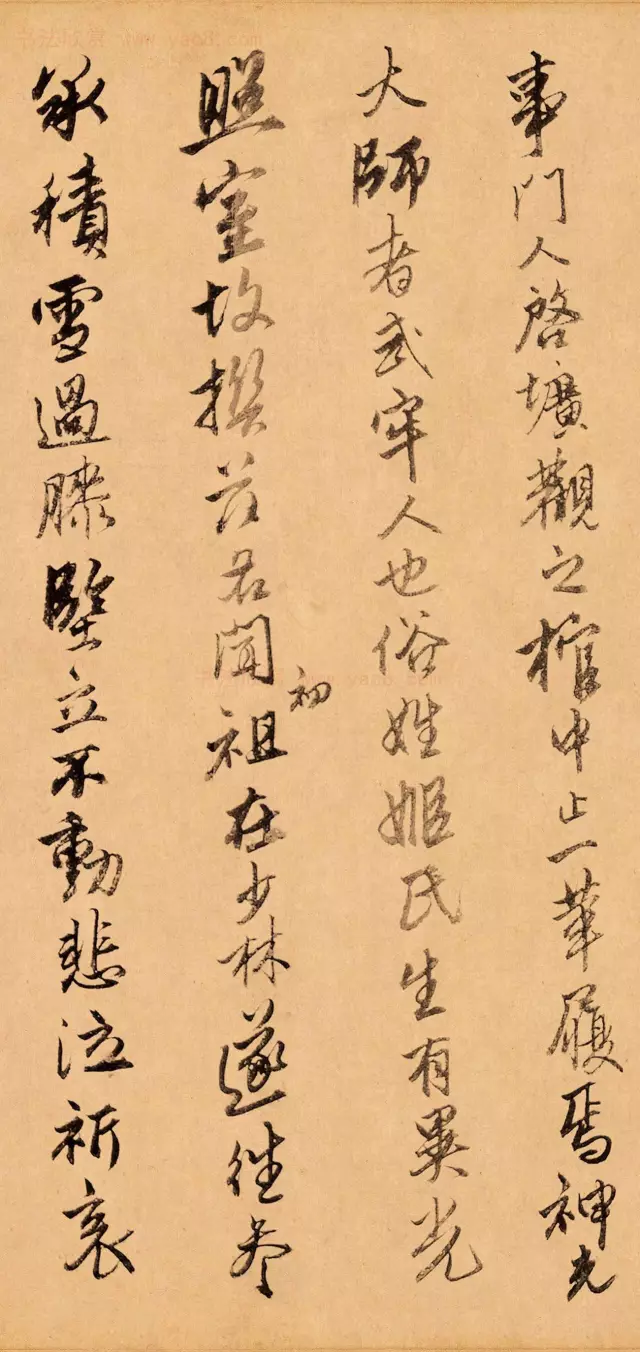 书法欣赏 www.yac8.com
事門人啓壙觀之棺中止一革履焉神光
大師者武牢人也俗姓姬氏生有異光
照室故撰茲名聞初祖在少林遂往參
承積雪過膝堅立不動悲泣祈哀